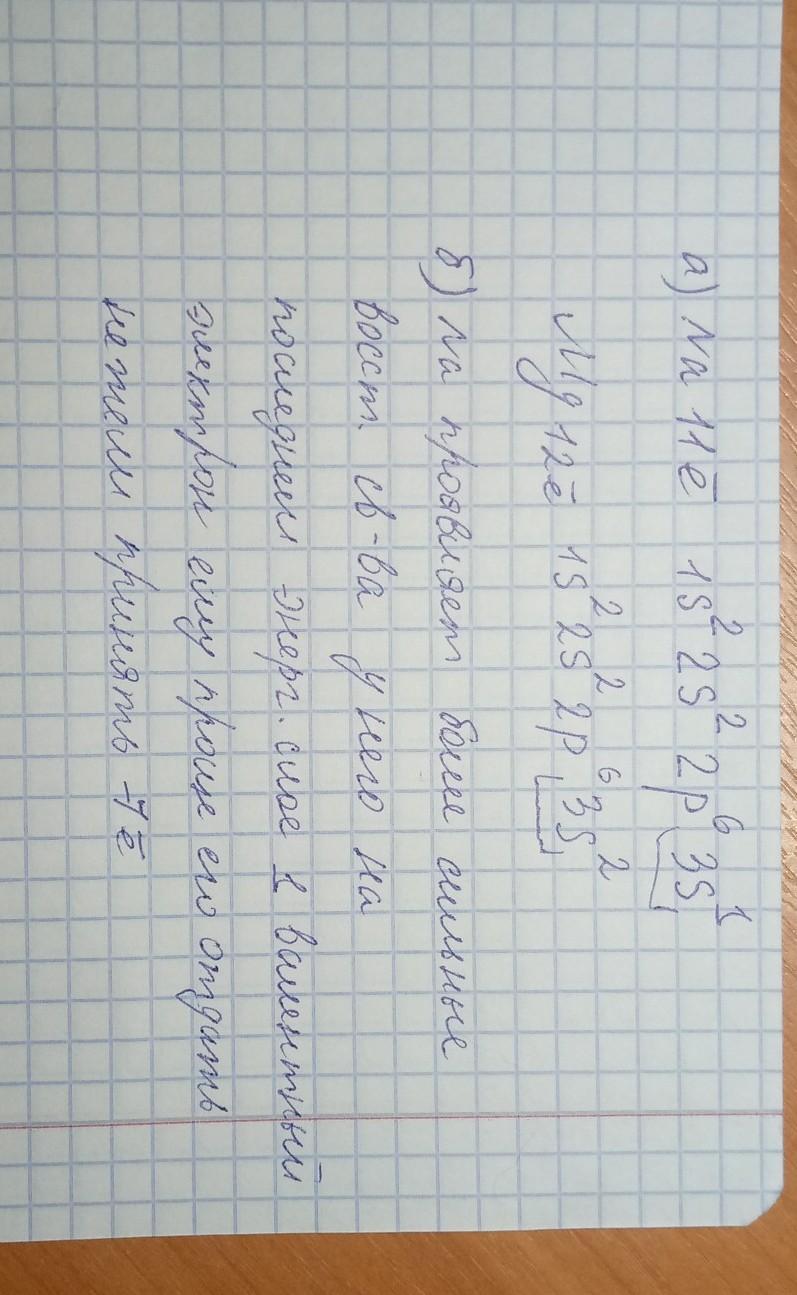 а) Na 11ē 1s² 2s² 2p⁶ 3s¹
Mg 12ē 1s² 2s² 2p⁶ 3s²
б) Na проявляет более сильные
восст. св-ва у него на
последнем энерг. слое 1 валентный
электрон ему проще его отдать
нежели принять 7ē